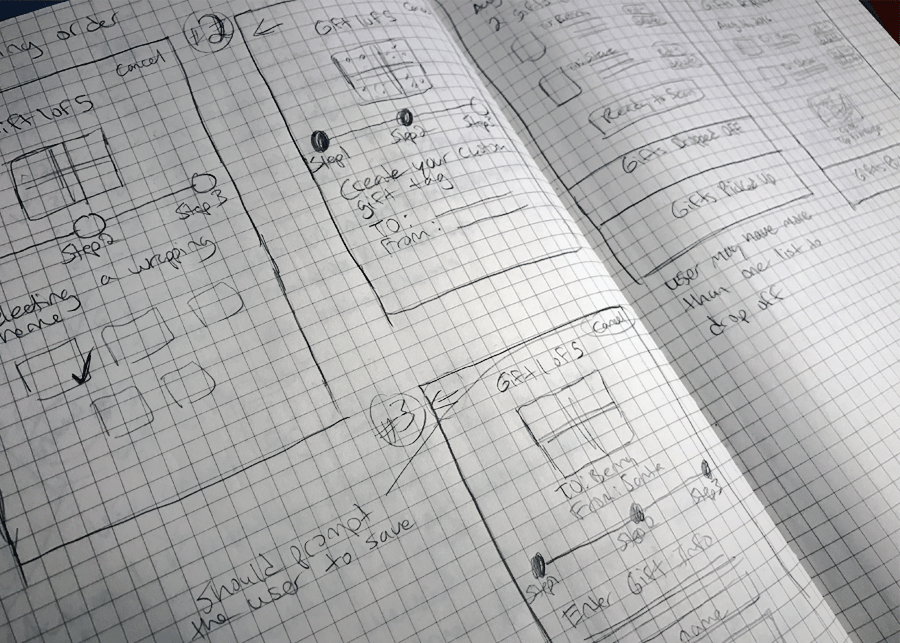 ing order
Cancel
Gift 1 of 5
Step 2
Step 3
Selecting a wrapping
theme
#2
Gift 1 of 5
Step 1
Step 2
Step 3
Create your custom
gift tag
TO:
From:
#3
Cancel
Gift 1 of 5
TO: Benny
From: Santa
Step 1
Step 2
Step 3
Enter Gift Info
name
Should prompt
the user to save
Ready to Scan
Gifts Dropped off
Gifts Picked up
user may have more
than one list to
drop off